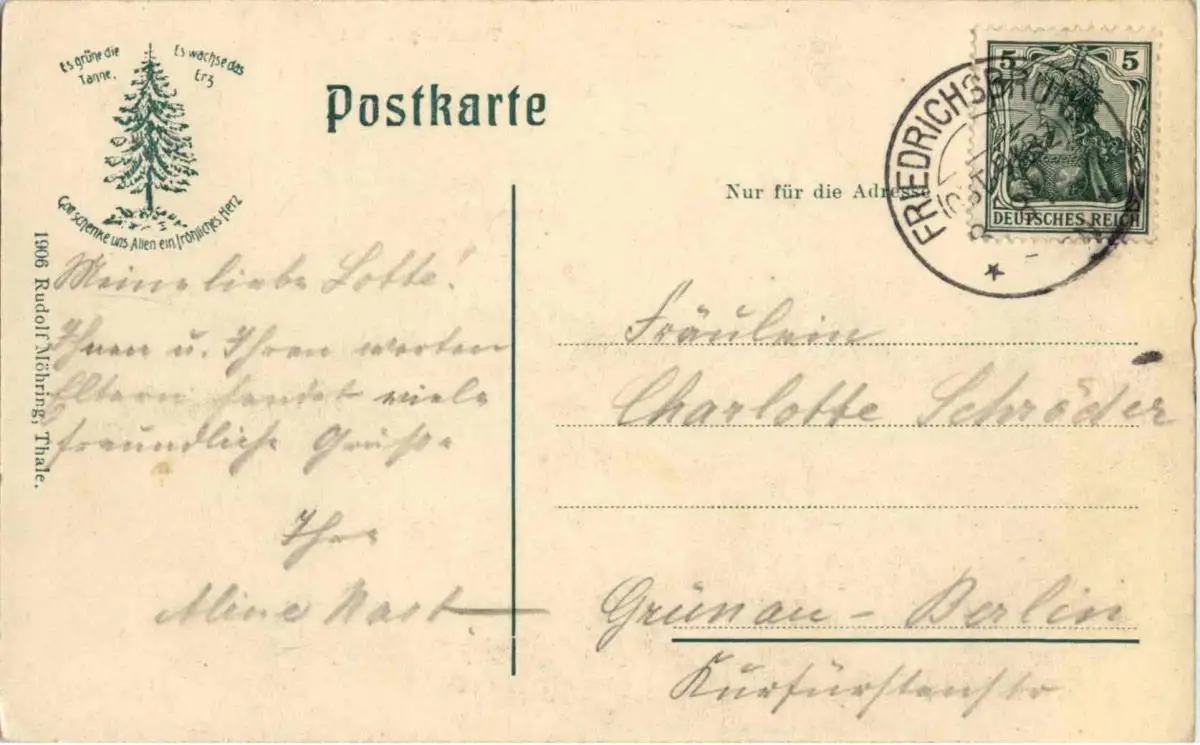 Es grüne die
Tanne,
Es wachse das
Erz
Gott schenke uns Allen ein fröhliches Herz
Postkarte
Nur für die Adresse
5 5
DEUTSCHES REICH
FRIEDRICHSBRUNN
1906 Rudolf Möhring, Thale.
Meine liebe Lotte!
Ihnen u. Ihren werten
Eltern sendet viele
freundliche Grüße
Ihre
Aline Nast
Fräulein
Charlotte Schröder
Grünau - Berlin
Kurfürstenstr